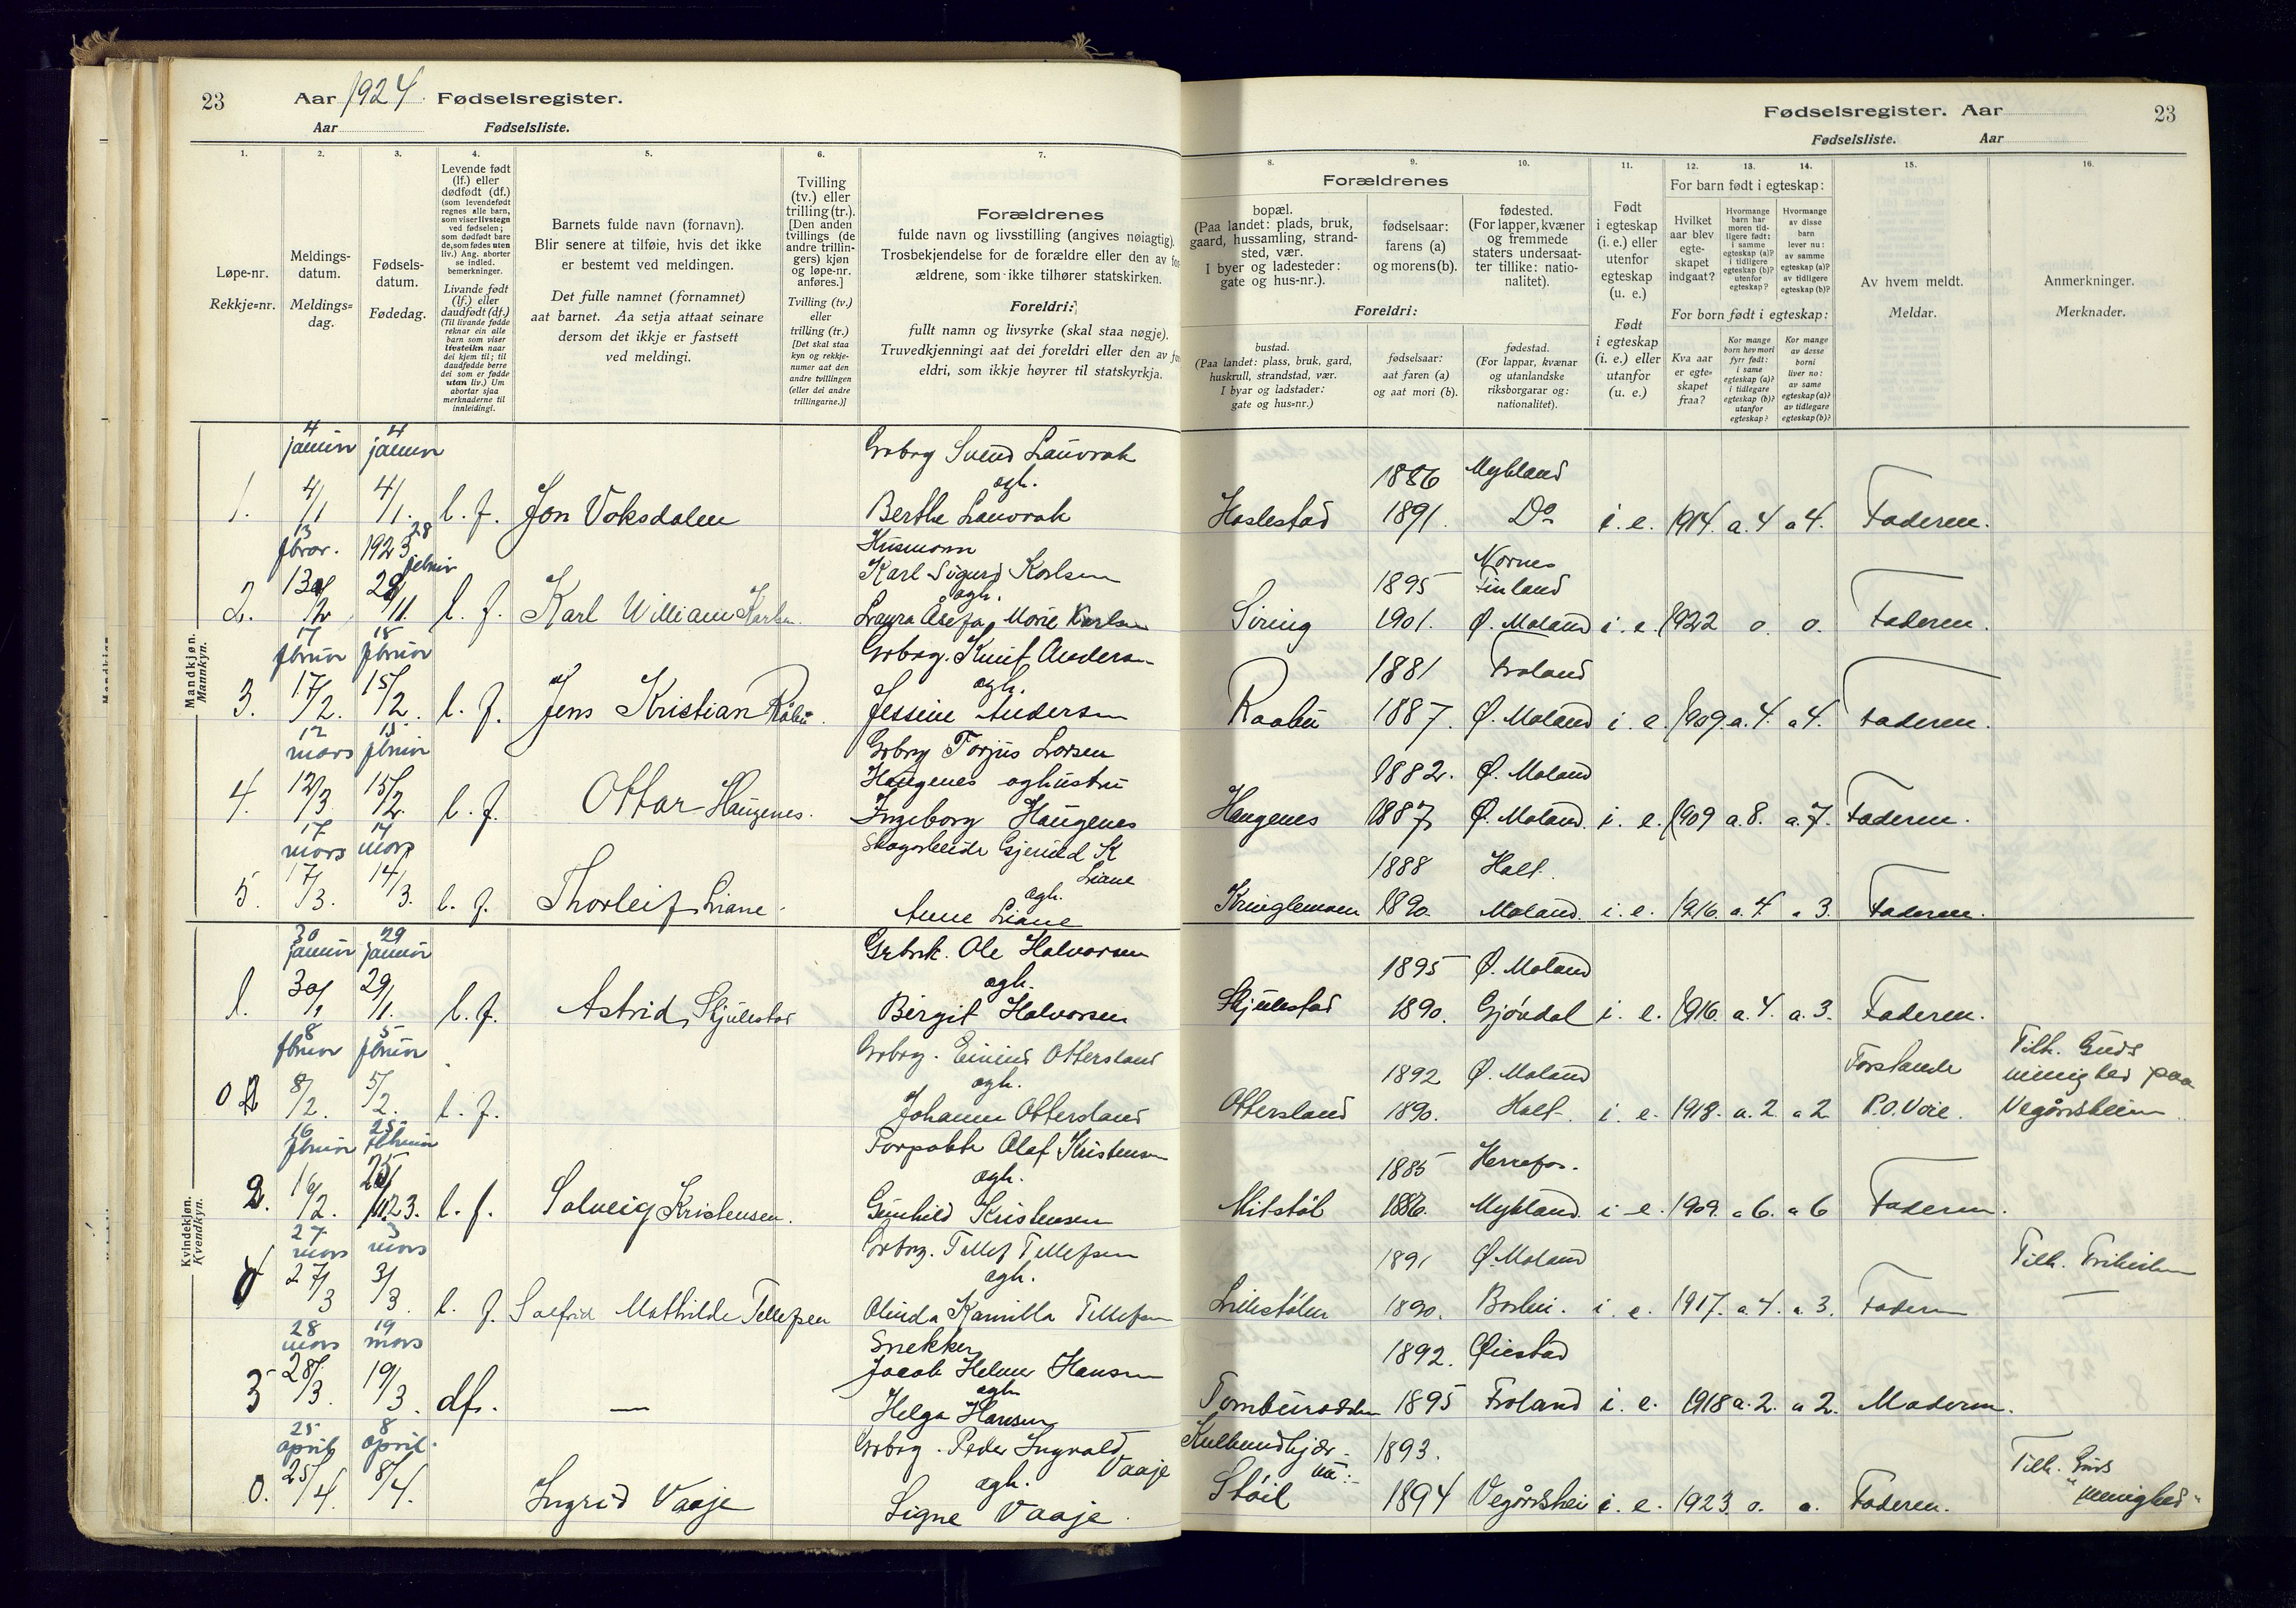 23 Aar 1924. Fødselsregister.
Aar Fødselsliste.
Fødselsregister. Aar 23
Fødselsliste. Aar
1. 2. 3. 4. 5. 6. 7.
Løpe-nr.
Rekkje=nr.
Meldings-
datum.
Meldings=
dag.
Fødsels-
datum.
Fødedag.
Levende født
(lf.) eller
dødfødt (df.)
(som levendefødt
regnes alle barn,
som viser livstegn
ved fødselen;
som dødfødt bare
de, som fødes uten
liv.) Ang. aborter
se indled.
bemerkninger.
Livande født
(lf.) eller
daudfødt (df.)
(Til livande fødde
reknar ein alle
barn som viser
livsteikn naar
dei kjem til; til
daudfødde berre
dei som er fødde
utan liv.) Um
abortar sjaa
merknaderne til
innleidingi.
Barnets fulde navn (fornavn).
Blir senere at tilføie, hvis det ikke
er bestemt ved meldingen.
Det fulle namnet (fornamnet)
aat barnet. Aa setja attaat seinare
dersom det ikkje er fastsett
ved meldingi.
Tvilling
(tv.) eller
trilling (tr.).
[Den anden
tvillings (de
andre trillin-
gers) kjøn
og løpe-nr.
anføres.]
Tvilling (tv.)
eller
trilling (tr.)
[Det skal staa
kyn og rekkje-
numer aat den
andre tvillingen
(eller dei andre
trillingarne.)]
Forældrenes
fulde navn og livsstilling (angives nøiagtig).
Trosbekjendelse for de forældre eller den av
ældrene, som ikke tilhører statskirken.
Foreldri:
fullt namn og livsyrke (skal staa nøgje).
Truvedkjenningi aat dei foreldri eller den av
eldri, som ikkje høyrer til statskyrkja.
8. 9. 10. 11. 12. 13. 14. 15. 16.
Forældrenes
bopæl.
(Paa landet: plads, bruk,
gaard, hussamling, strand-
sted, vær.
I byer og ladesteder:
gate og hus-nr.).
fødselsaar:
farens (a)
og morens (b).
fødested.
(For lapper, kvæner
og fremmede
staters undersaat-
ter tillike: natio-
nalitet).
Foreldri:
bustad.
(Paa landet: plass, bruk, gard,
huskrull, strandstad, vær.
I byar og ladstader:
gate og hus=nr.)
fødselsaar:
aat faren (a)
og aat mori (b).
fødestad.
(For lappar, kvænar
og utanlandske
riksborgarar og:
nationalitet).
Født
i egteskap
(i. e.) eller
utenfor
egteskap
(u. e.)
Født
i egteskap
(i. e.) eller
utanfor
(u. e.)
For barn født i egteskap:
Hvilket
aar blev
egte-
skapet
indgaat?
Hvormange
barn har
moren tid-
ligere født:
i samme
egteskap (a)?
i tidligere
egteskap (b)?
utenfor
egteskap?
Hvormange
av disse
barn
lever nu:
av samme
egteskap (a)?
av tidligere
egteskap (b)?
For born født i egteskap:
Kva aar
er egte=
skapet
fraa?
Kor mange
born hev mori
fyrr født:
i same
egteskap (a)?
i tidlegare
egteskap (b)?
utanfor
egteskap?
Kor mange
av desse
borni
liver no:
av same
egteskap (a)?
av tidlegare
egteskap (b)?
Av hvem meldt.
Meldar.
Anmerkninger.
Merknader.
Mandkjøn.
Mannkyn.
4 januar 4 januar Grbrg Svend Lauvrak 1886 Mykland
ogh.
1. 4/1 4/1. l. f. Jon Voksdalen Berthe Lauvrak Haslestad 1891. Do i. e. 1914. a. 4 a 4. Faderen.
13 fbrar. 1923 28 Husmann
Karl Sigurd Karlsen 1895 Finland
ogh.
2. 13/2 28/11. l. f. Karl William Karlsen Laura Åsefa Marie Karlsen Siring 1901. Ø. Moland i. e. 1922 o. o. Faderen.
17 fbruar 15 fbruar Grbrg. Knut Andersen 1881 Froland
ogh.
3. 17/2. 15/2. l. f. Jens Kristian Råbu. Jessine Andersen Raabu 1887. Ø. Moland i. e. 1909. a. 4. a 4. Faderen.
12 mars 15 fbruar Grbrg Torjus Larsen
Haugenes og hustru 1882. Ø. Moland
4. 12/3 15/2. l. f. Ottar Haugenes. Ingeborg Haugenes Haugenes 1887 Ø. Moland. i. e. 1909 a. 8. a. 7. Faderen.
17 mars 14 mars Skogarbeider Gjeruld K Liane 1888 Holt
ogh.
5. 17/3. 14/3. l. f. Thorleif Liane. Anne Liane Kringlemoen 1890. Moland. i. e. 1916. a. 4. a 3. Faderen.
Kvindekjøn.
Kvendkyn.
30 januar 29 januar Grbrk. Ole Halvorsen 1895 Ø. Moland
ogh.
1. 30/1 29/1. l. f. Astrid, Skjulestad Birgit Halvorsen Skjulestad 1890. Gjøvdal i. e. 1916. a. 4. a. 3. Faderen.
8 fbruar 5 fbruar Grbrg. Ottersland 1892 Ø. Moland Forstander Tilh. Guds
ogh. menighed paa
0 8/2. 5/2. l. f. Johanne Ottersland Ottersland 1890. Holt i. e. 1918. a. 2 a 2 P. O. Voie. Vegårdsheien
16 fbruar 25 Forpakter Olaf Kristensen 1885 Herrefos.
ogh.
2. 16/2. 25/11 23. l. f. Solveig Kristensen. Gunhild Kristensen Mitstøl 1886. Mykland. i e. 1909. a 6. a 6 Faderen.
27 mars 3 mars Grbrg. Tellef Tellefsen 1891 Ø. Moland Tilh. Frikirken
ogh.
27/3 3/3. l. f. Salfrid Mathilde Tellefsen Olinda Kamilla Tellefsen Lillestølen 1890. i. e. 1917. a. 4. a. 3. Faderen —
28 mars 19 mars Snekker
Jacob Helmer Hansen 1892. Øiestad
ogh
3 28/3. 19/3. df. — Helga Hansen 1895 Froland i. e. 1918 a. 2. a 2. Moderen.
25 april 8 april. Grbrg. Peder Ingvald Vaaje 1893. Tilh. Guds
ogh. menighed
0. 25/4. 8/4. Ingrid Vaaje Signe Vaaje. Støil 1894 Vegårdshei i. e. 1923. o. o. Faderen.